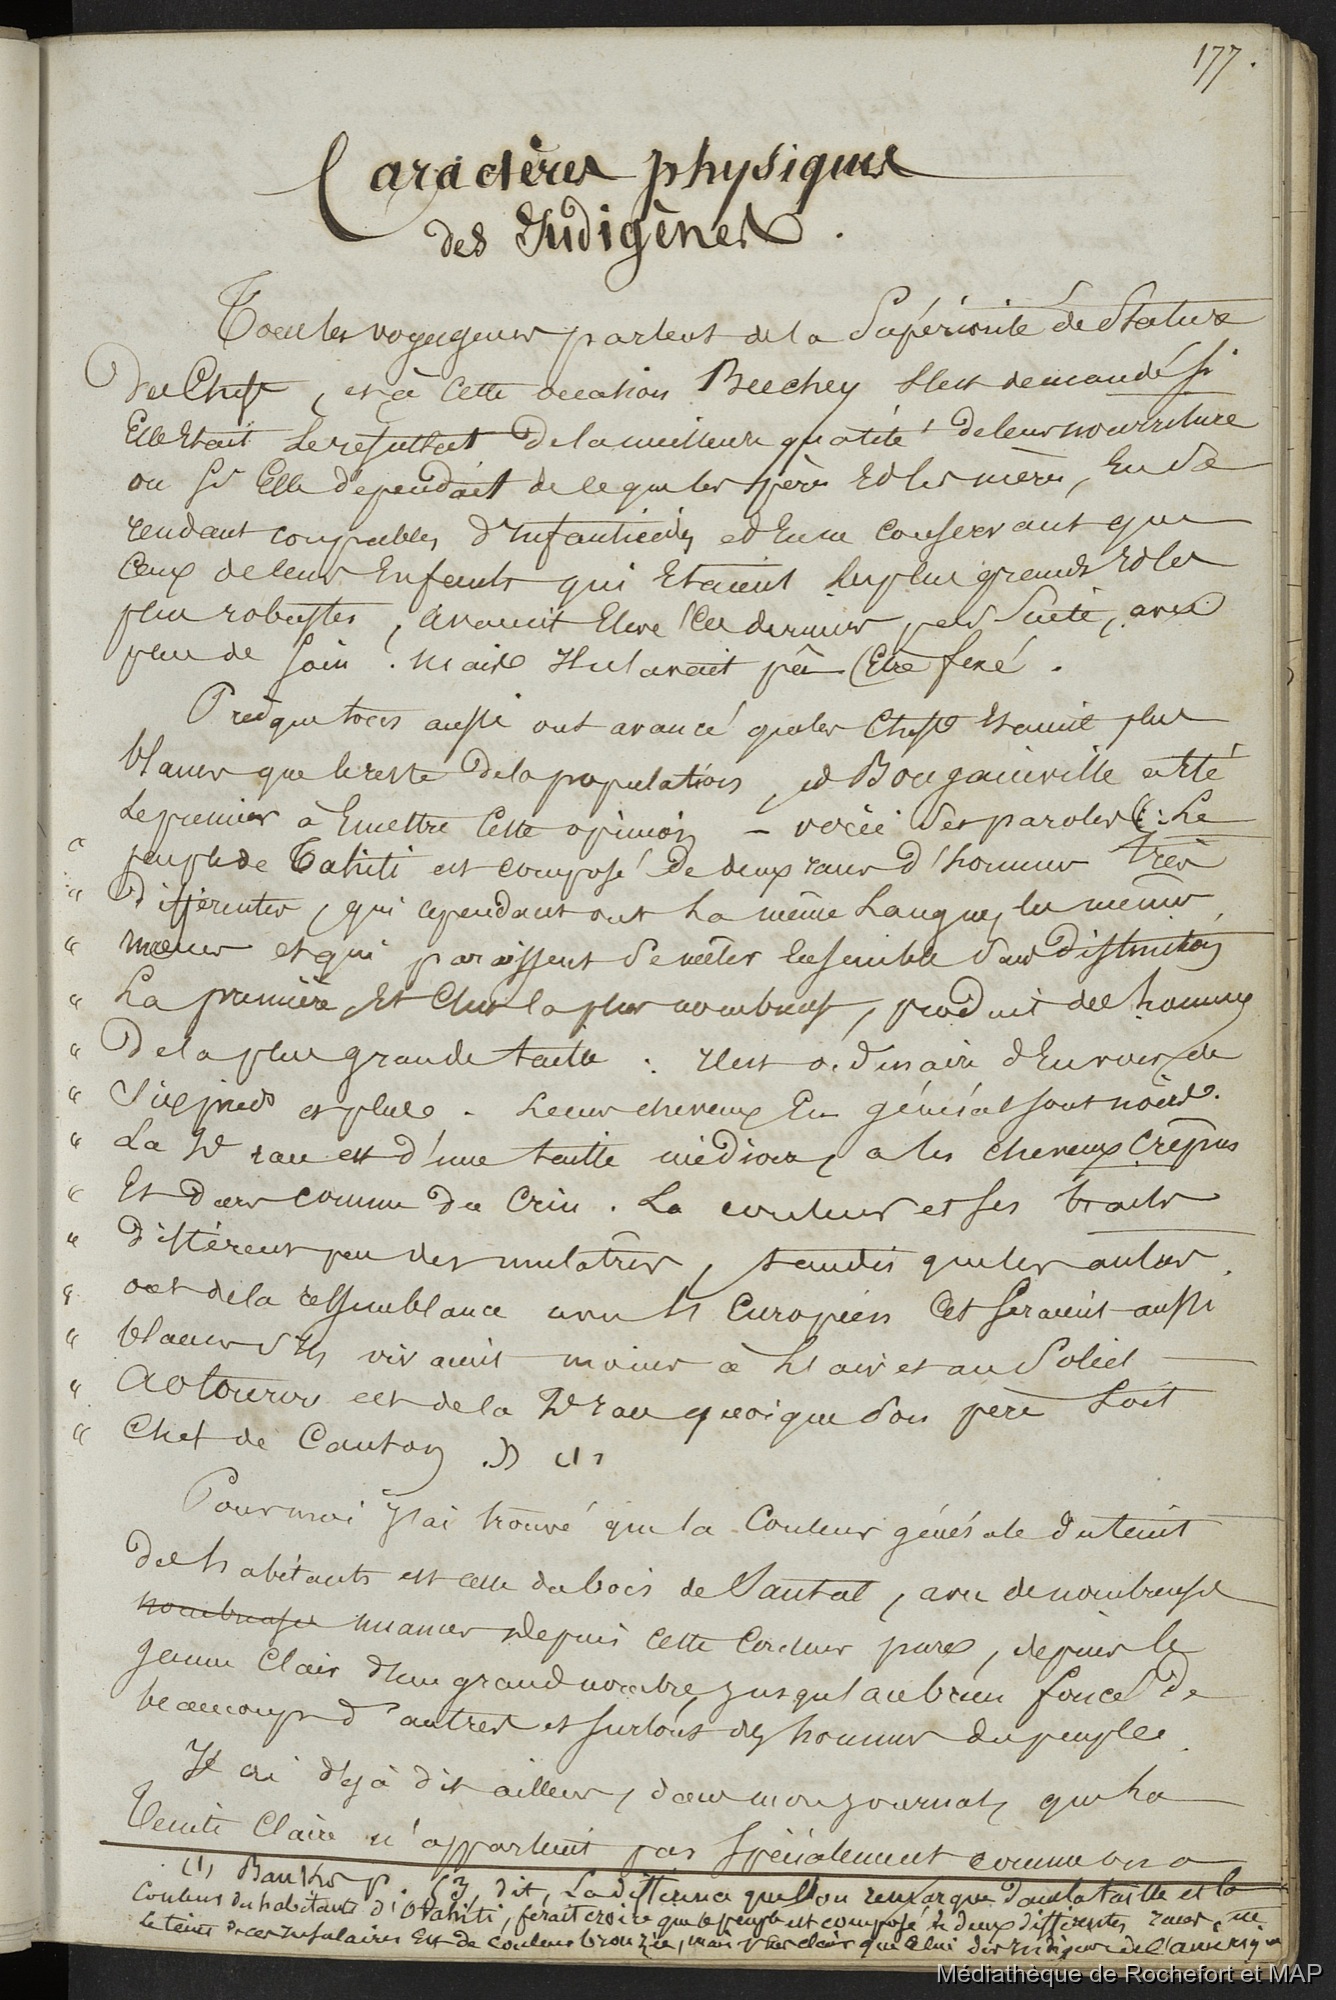 177.
Caractères physiques
des Indigènes.
Tous les voyageurs parlent de la Supériorité de Stature
des Chefs, et à cette occasion Beechey s'est demandé si
Elle Etait le résultat de la meilleure qualité de leur nourriture
ou si Elle dépendait de ce que les pères et les mères, En se
rendant coupables d'Infanticides et En ne conservant que
Ceux de leurs Enfants qui Etaient les plus grands et les
plus robustes, avaient Elevé ces derniers par suite, avec
plus de soin. Mais Il n'avait pu Etre fixé.
Presque tous aussi ont avancé que les Chefs Etaient plus
blancs que le reste de la population, et Bougainville a Eté
le premier à Emettre Cette opinion – voici ses paroles : Le
" peuple de Tahiti est composé de deux races d'hommes très
" différentes, qui cependant ont la même langue, les mêmes
" mœurs et qui paraissent se mêler Ensemble sans distinction,
" La première, Et C'est la plus nombreuse, produit des hommes
" De la plus grande taille : Il est ordinaire d'En voir de
" Six pieds et plus. Leurs cheveux En général sont noirs.
" La 2e race est d'une taille médiocre, a les cheveux Crépus
" Et durs comme du Crin. La couleur et ses traits
" diffèrent peu des mulâtres, tandis que les autres
" ont de la ressemblance avec les Européens Et seraient aussi
" blancs s'Ils vivaient moins à l'air et au Soleil
" Aotourou est de la 2e race quoique son père soit
" Chef de Canton. » (1)
Pour moi j'ai trouvé que la Couleur générale du teint
des habitants est celle du bois de Santal, avec de nombreuses
nombreuses nuances depuis cette Couleur pure, depuis le
jaune Clair d'un grand nombre, jusqu'au brun foncé de
beaucoup d'autres et surtout des hommes du peuple.
J'ai déjà dit ailleurs, dans mon journal, que la
Teinte Claire n'appartient pas Spécialement comme on a
(1) Banks p. 63, dit, La différence que l'on remarque dans la taille et la
Couleur des habitants d'Otahiti, ferait croire que le peuple est composé de deux différentes races,
Le teint de ces Insulaires Est de couleur bronzée, mais plus clair que celui des Indigènes de l'amérique
Médiathèque de Rochefort et MAP